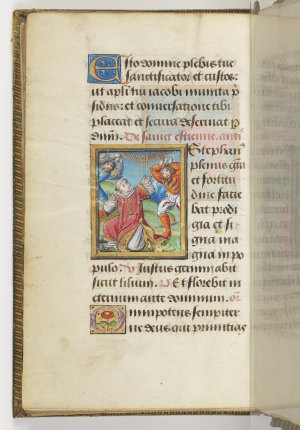 Esto domine plebis tue
sanctificator et custos:
ut apli tui iacobi munita p̄
sidiis: et conversatione tibi
placeat et secura deserviat p̄
dnm̄. De sainct estienne. anti
Stephan9
plenus grā
et fortitu
dine facie
bat prodi
gia et si
gna ma
gna in po
pulo. Iustus germinabit
sicut lilium. Et florebit in
eternum ante dominum.
Omnipotens sempiter
ne deus qui primitias